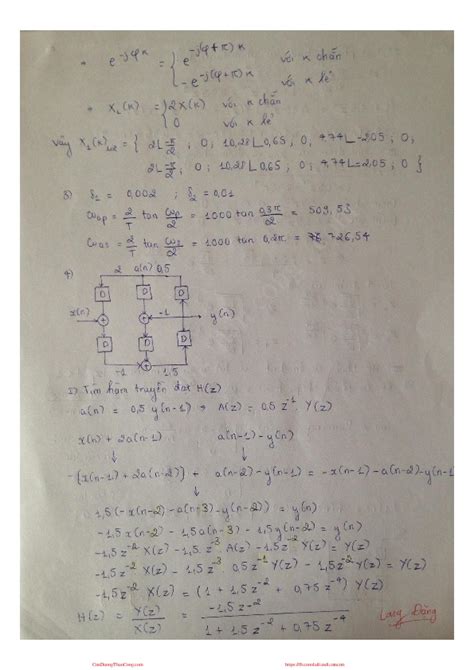 * e^{-jφκ} = { e^{-j(φ+π)κ} với κ chẵn
-e^{-j(φ+π)κ} với κ lẻ
* X₂(κ) = { 2X(κ) với κ chẵn
0 với κ lẻ
Vậy X₂(κ)₁₂ = { 2∟-π/2 ; 0; 10,28∟0,65; 0, 4,74∟-2,05; 0;
2∟-π/2; 0; 10,28∟0,65; 0; 4,74∟-2,05; 0 }
3) δ₁ = 0,002 ; δ₂ = 0,01
ωap = 2/T tan ωp/2 = 1000 tan 0,3π/2 = 509,53
ωas = 2/T tan ωs/2 = 1000 tan 0,2π = 726,54
4)
2 a(n) 0,5
D D D
x(n) + + -1 y(n)
D D D
-1 + 1,5
1) Tìm hàm truyền đạt H(z)
a(n) = 0,5 y(n-1) → A(z) = 0,5 z^{-1} Y(z)
x(n) + 2a(n-1) a(n-1) - y(n)
↓ ↓
-(x(n-1) + 2a(n-2)) + a(n-2) - y(n-1) = -x(n-1) - a(n-2) - y(n-1)
↓
1,5(-x(n-2) - a(n-3) - y(n-2)) = y(n)
-1,5x(n-2) - 1,5a(n-3) - 1,5y(n-2) = y(n)
-1,5z^{-2} X(z) - 1,5z^{-3} A(z) - 1,5z^{-2} Y(z) = Y(z)
-1,5z^{-2} X(z) - 1,5z^{-3} 0,5z^{-1} Y(z) - 1,5z^{-2} Y(z) = Y(z)
-1,5z^{-2} X(z) = (1 + 1,5z^{-2} + 0,75z^{-4}) Y(z)
H(z) = Y(z)/X(z) = -1,5z^{-2} / 1 + 1,5z^{-2} + 0,75z^{-4}
Long Đặng
CuuDuongThanCong.com